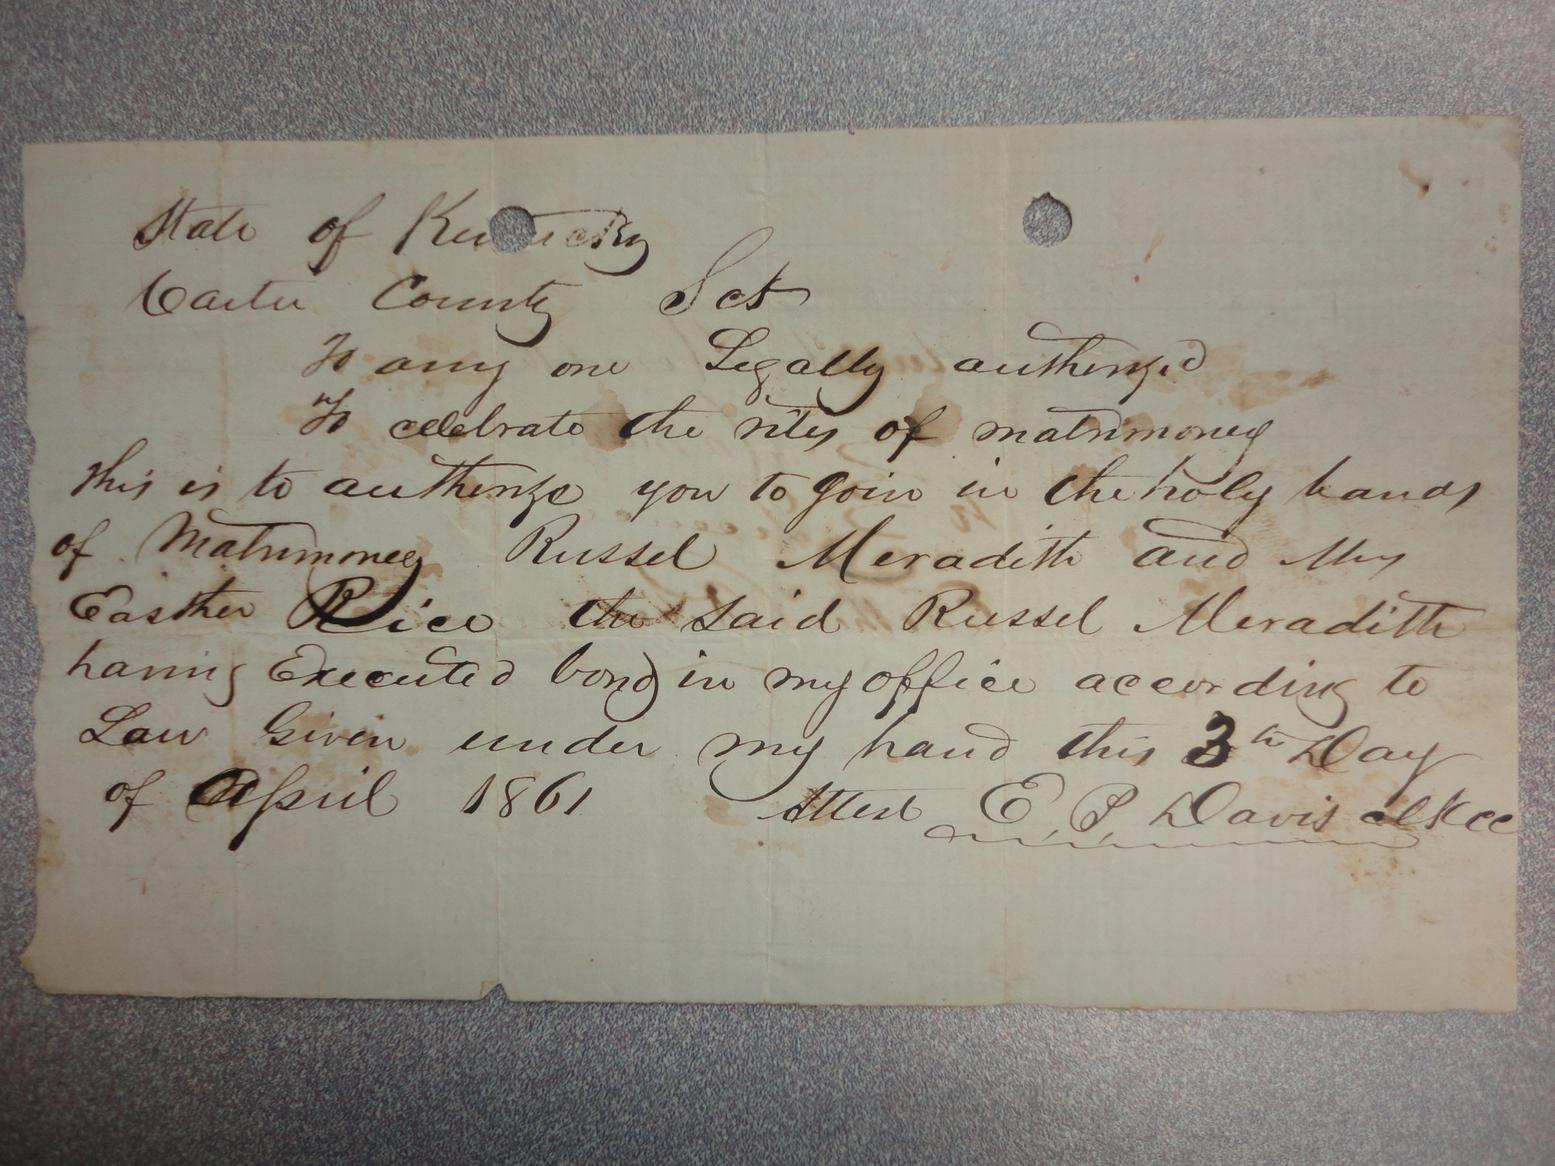 State of Kentucky
Carter County Sct
To any one Legally authorized
To celebrate the rites of matrimoney
this is to authorize you to Join in the holy bands
of Matrimoney Russel Meradith and Mrs
Easther Rice the said Russel Meradith
having Executed bond in my office according to
Law Given under my hand this 3th Day
of April 1861 Attest E. P. Davis clk cc